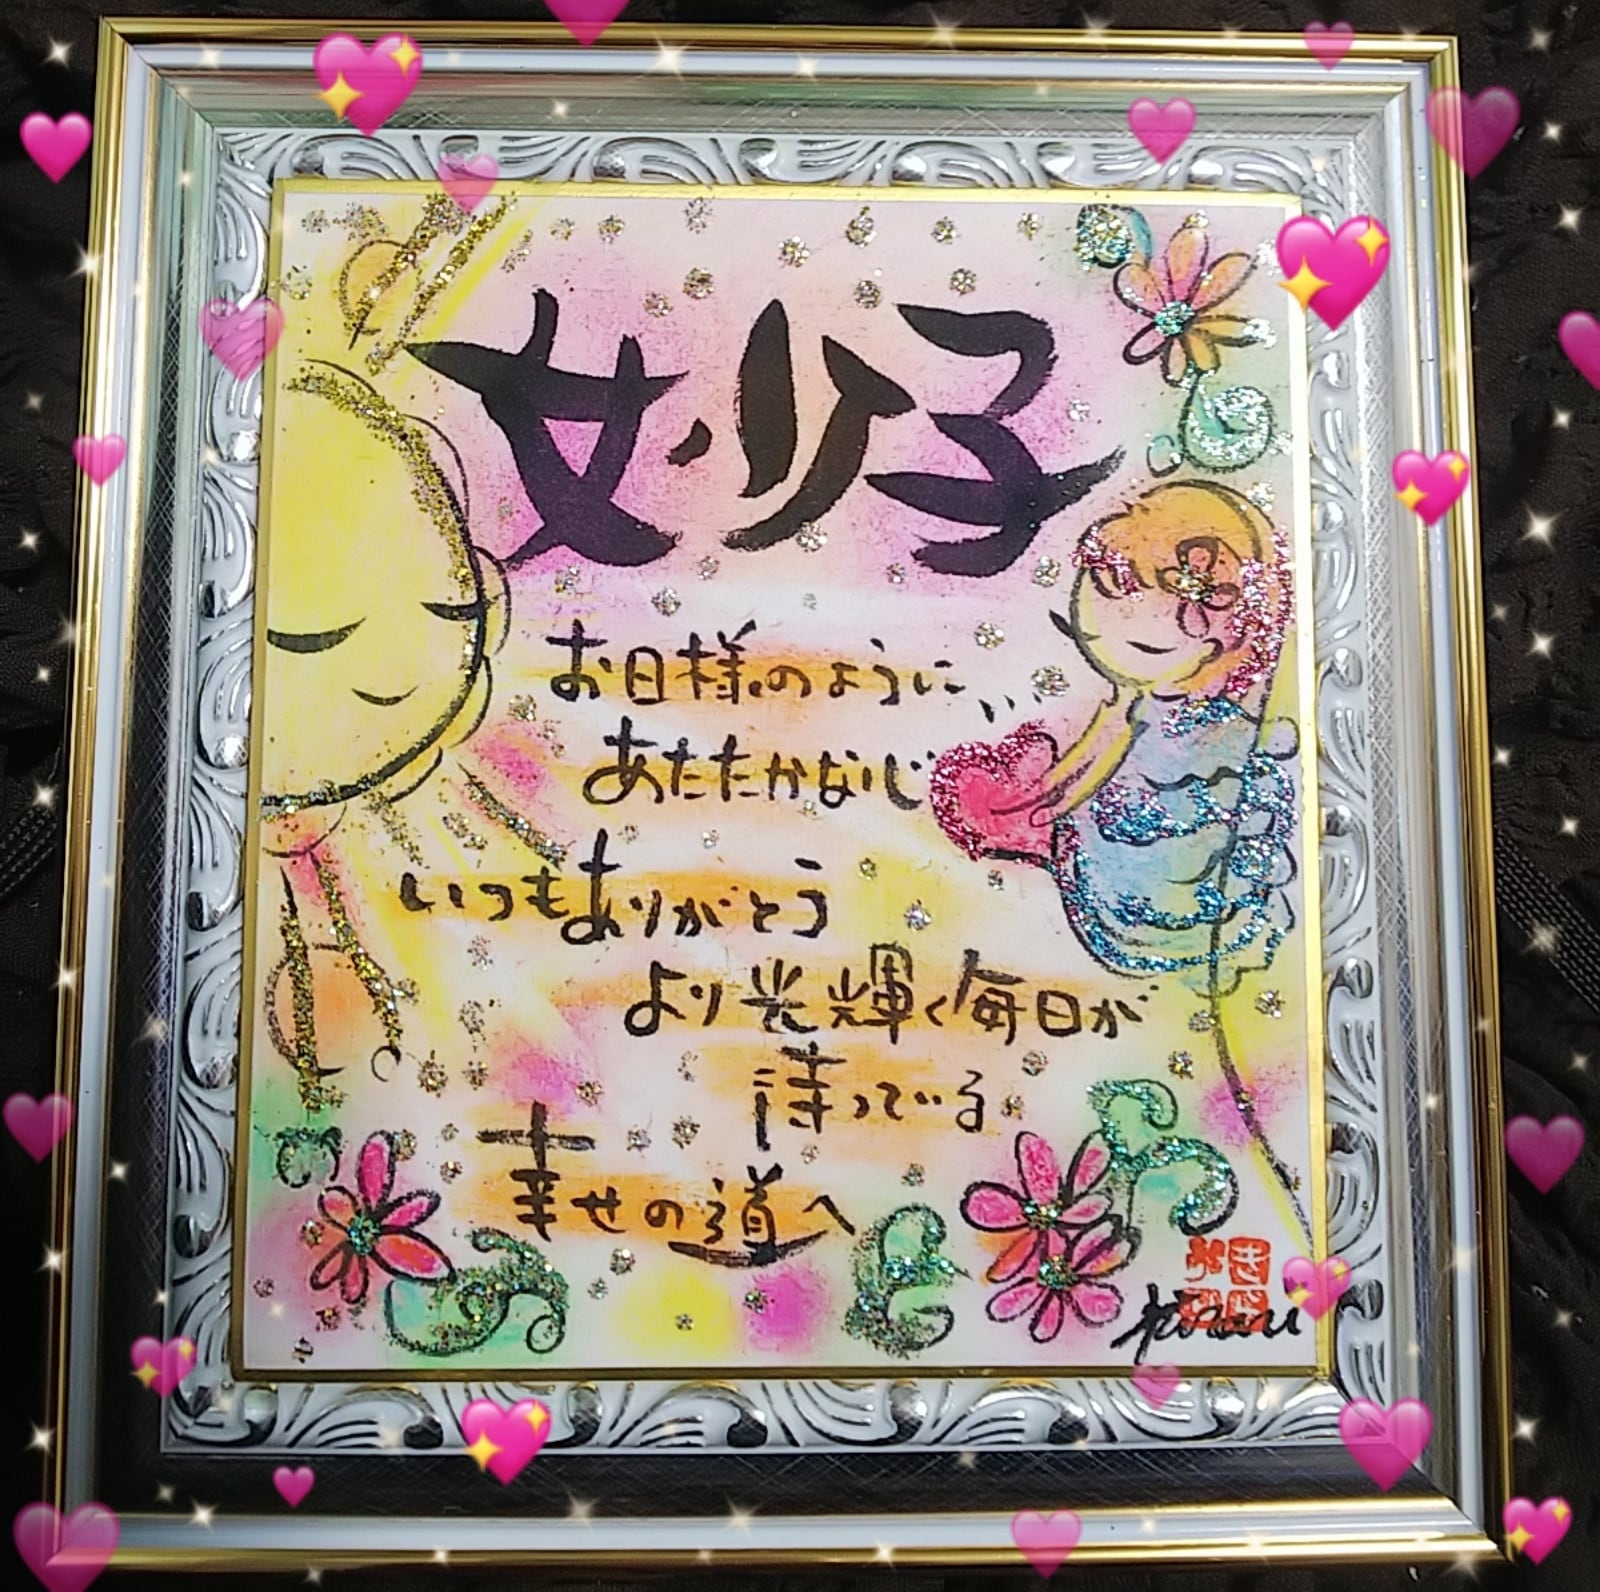 妙子
お日様のように
あたたかな心
いつもありがとう
より光輝く毎日が
待っている
幸せの道へ